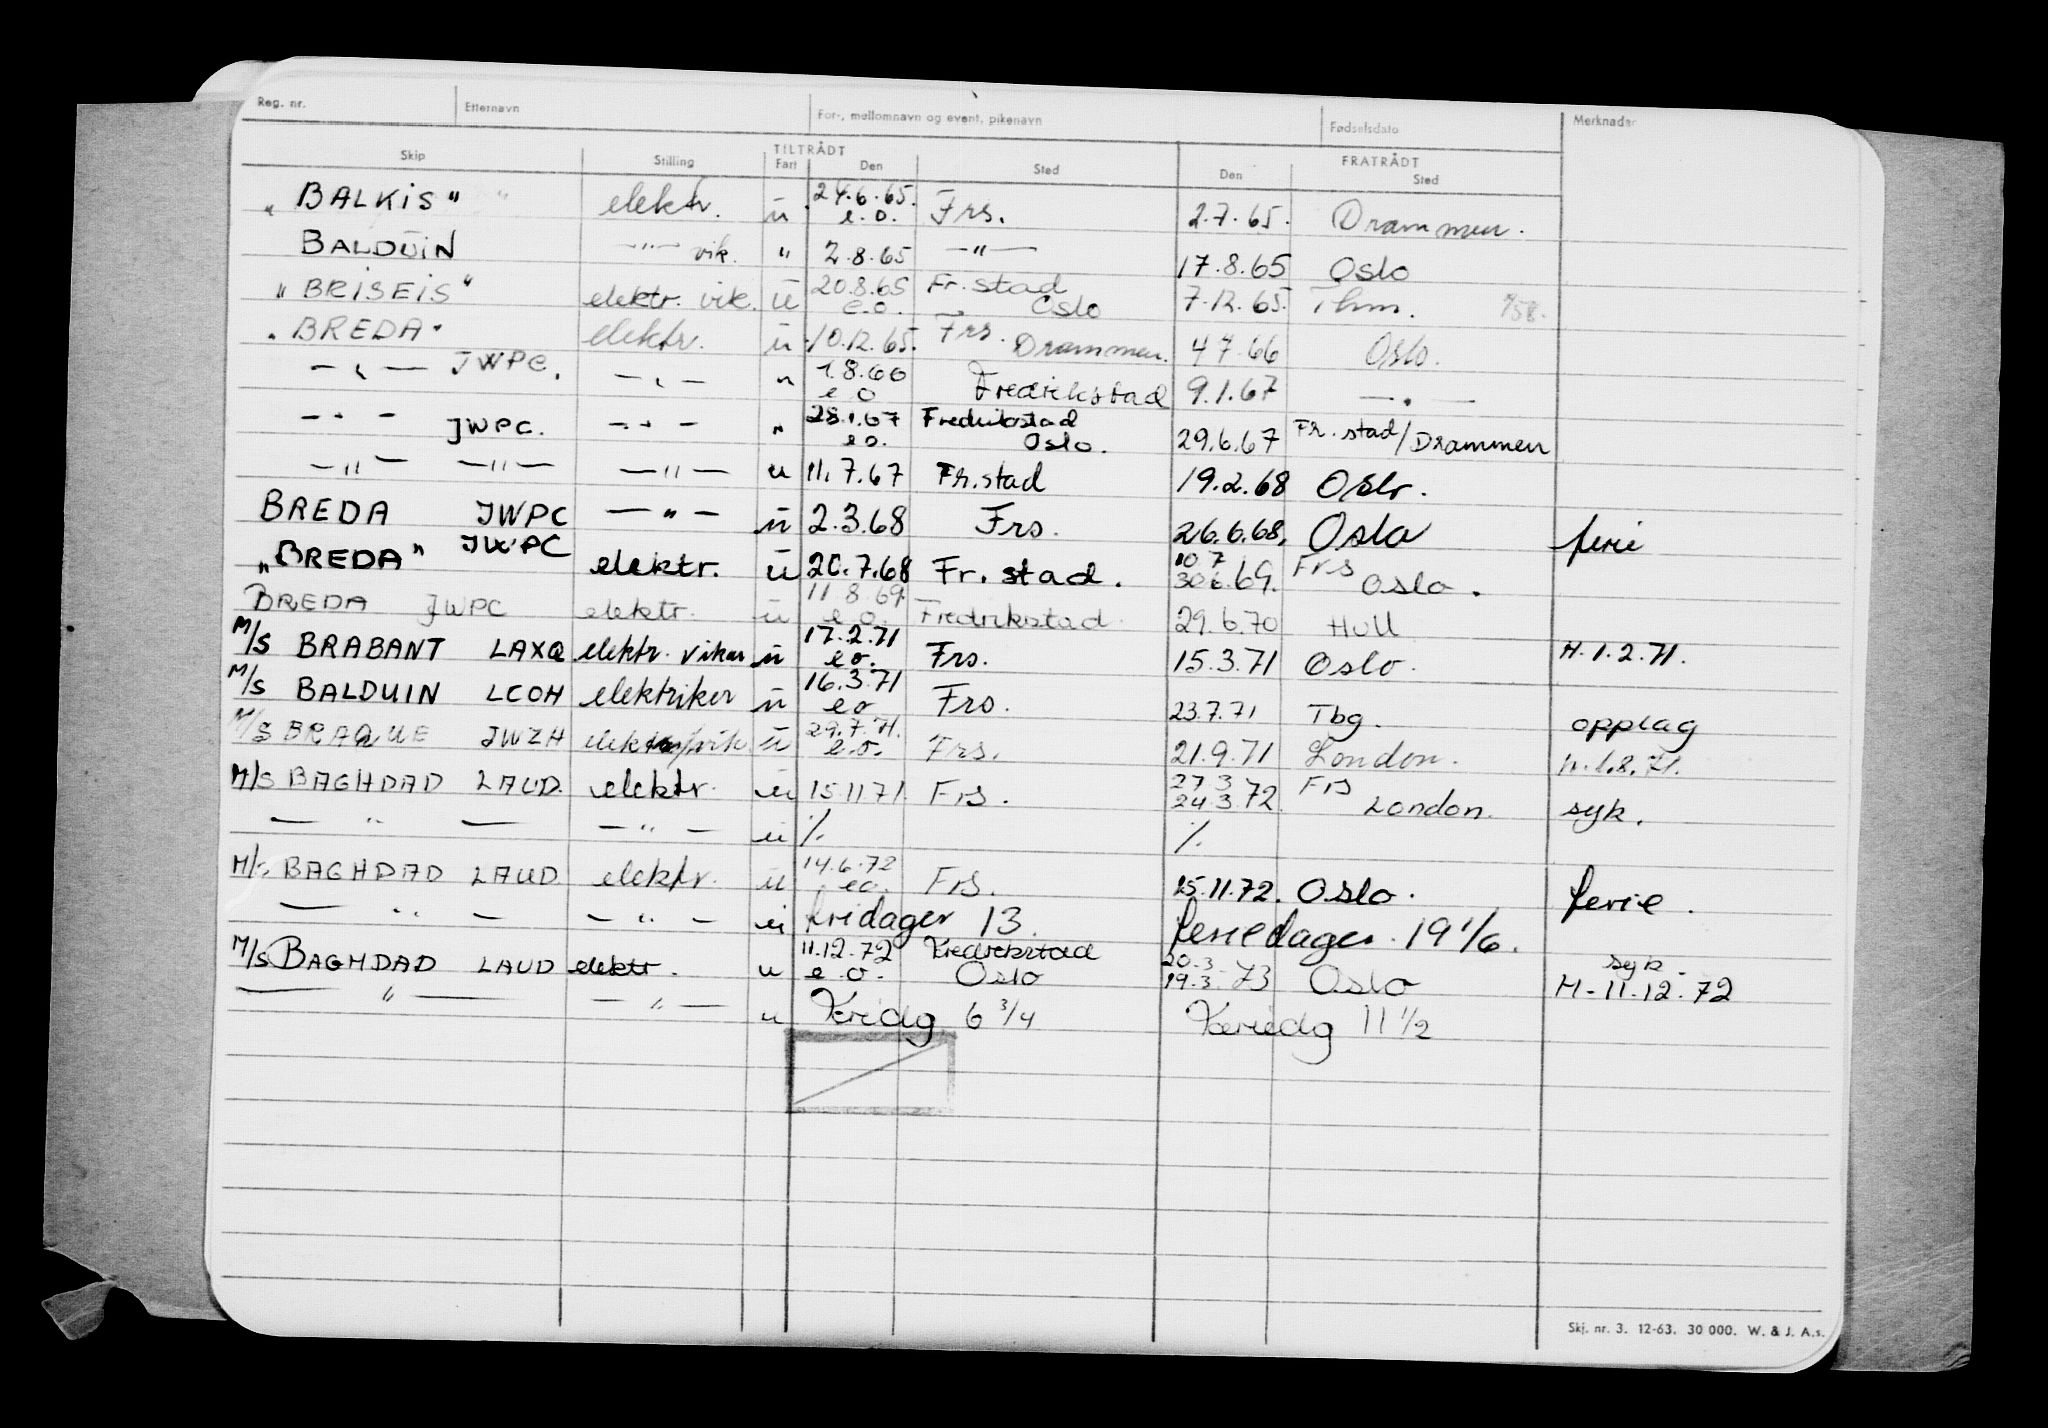 Reg. nr. Etternavn For-, mellomnavn og event. pikenavn Fødselsdato Merknader
TILTRÅDT FRATRÅDT
Skip Stilling Fart Den Sted Den Sted
„BALKIS" elektr. u 24.6.65. e.o. Frs. 2.7.65. Drammen.
BALDUIN —"— vik. " 2.8.65 —"— 17.8.65 Oslo
"BRISEIS" elektr. vik. u 20.8.65 e.o. Fr.stad Oslo 7.12.65. Thm.
"BREDA" elektr. u 10.12.65. Frs. Drammen. 4 7.66 Oslo.
—"— JWPC. —"— " 1.8.66 e o Fredrikstad 9.1.67 —"—
—"— JWPC. —"— " 28.1.67 e o. Fredrikstad Oslo. 29.6.67 Fr.stad/Drammen
—"— —"— —"— u 11.7.67 Fr.stad 19.2.68 Oslo.
BREDA JWPC —"— u 2.3.68 Frs. 26.6.68. Oslo ferie
„BREDA" JWPC elektr. u 20.7.68 Fr.stad. 10 7 30.6.69. Frs Oslo.
BREDA JWPC elektr. u 11 8 69. e o. Fredrikstad. 29.6.70 Hull
M/S BRABANT LAXQ elektr. vikar u 17.2.71 e o. Frs. 15.3.71 Oslo. H.1.2.71.
M/S BALDUIN LCOH elektriker u 16.3.71 e o Frs. 23.7.71 Tbg. opplag
M/S BRAQUE JWZH elektr/vik. u 29.7.71. e.o. Frs. 21.9.71 London. H.1.8.71.
M/S BAGHDAD LAUD. elektr. u 15 11 71. Frs. 27 3 24 3 72. Frs London. syk.
— " — —"— u ./. ./.
M/S BAGHDAD LAUD elektr. u 14.6.72 e o. Frs. 15.11.72. Oslo. ferie.
— " — —"— u fridager 13. feriedager 19 1/6.
M/S BAGHDAD LAUD elektr. u 11.12.72 e o. Fredrikstad Oslo 20.3 19.3.73 Oslo syk. M-11-12.72
— " — —"— u Fridg 6 3/4 Feriedg 11 1/2
Skj. nr. 3. 12-63. 30 000. W. & J. A.s.